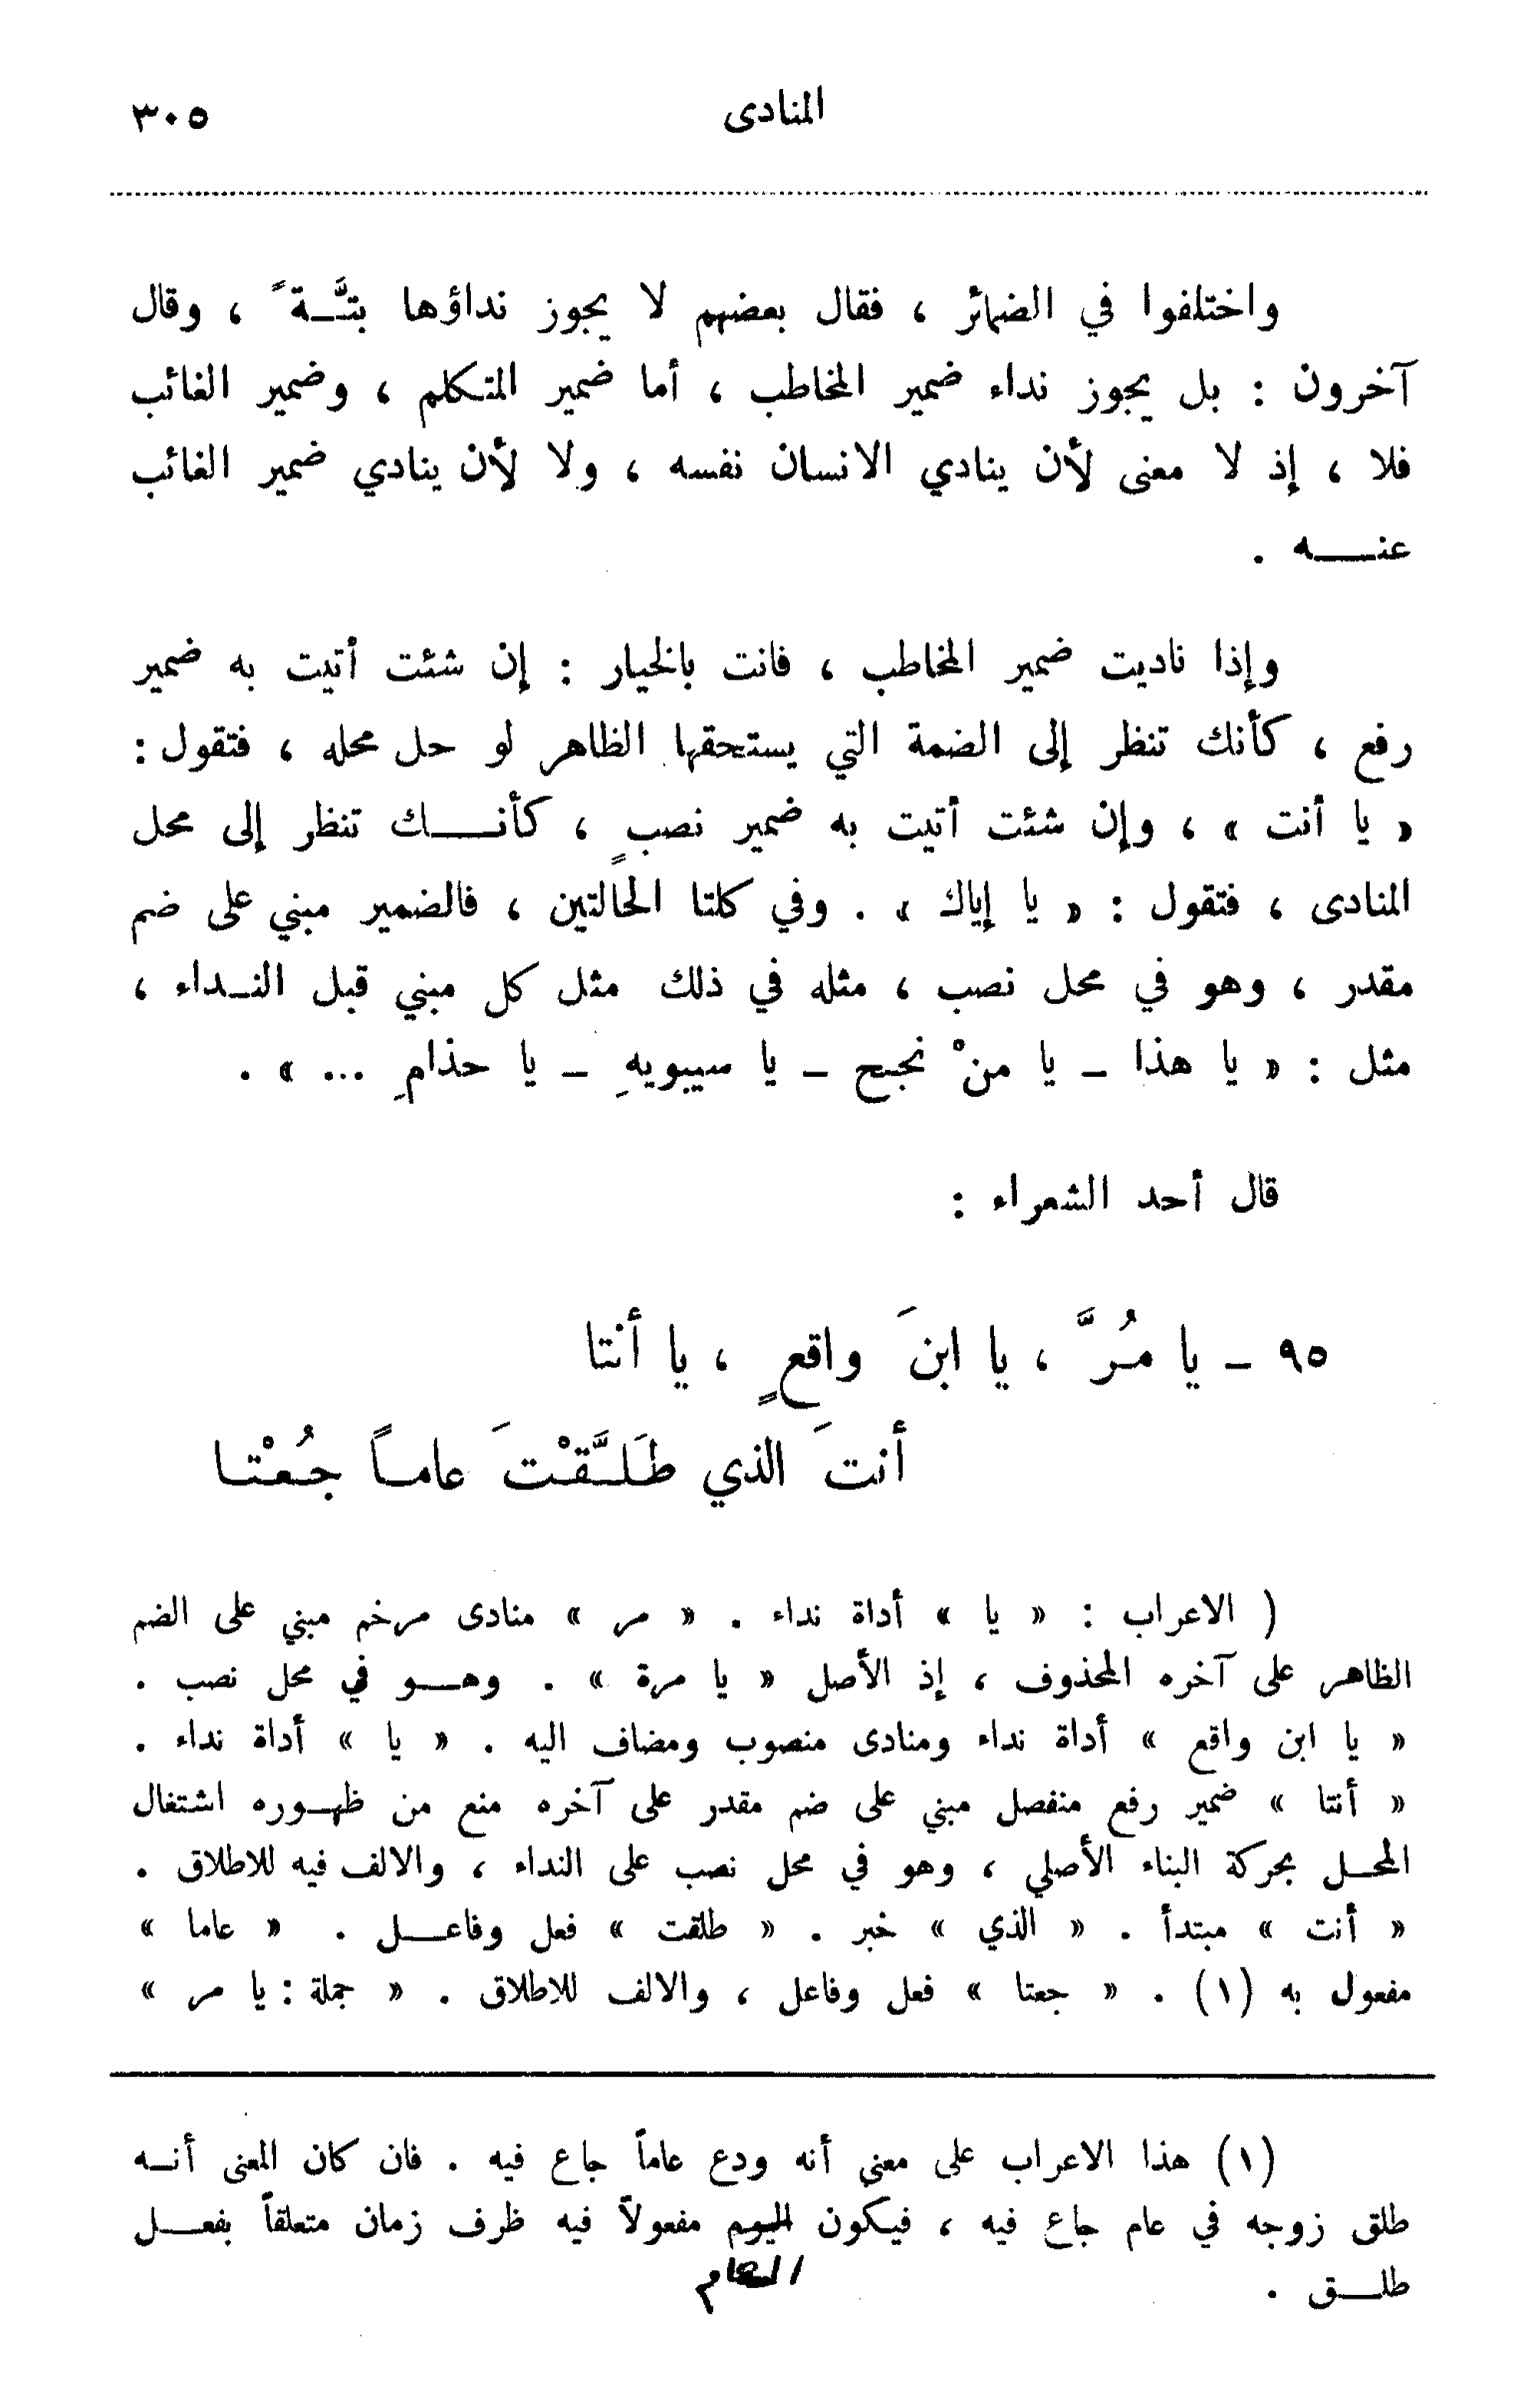 المنادى ٣٠٥
واختلفوا في الضمائر ، فقال بعضهم لا يجوز نداؤها بتَّـة ً ، وقال
آخرون : بل يجوز نداء ضمير المخاطب ، أما ضمير المتكلم ، وضمير الغائب
فلا ، إذ لا معنى لأن ينادي الانسان نفسه ، ولا لأن ينادي ضمير الغائب
عنـــه .
وإذا ناديت ضمير المخاطب ، فانت بالخيار : إن شئت أتيت به ضمير
رفع ، كأنك تنظر إلى الضمة التي يستحقها الظاهر لو حل محله ، فتقول :
« يا أنت » ، وإن شئت أتيت به ضمير نصبٍ ، كأنـــك تنظر إلى محل
المنادى ، فتقول : « يا إياك » . وفي كلتا الحالتين ، فالضمير مبني على ضم
مقدر ، وهو في محل نصب ، مثله في ذلك مثل كل مبني قبل النـداء ،
مثل : « يا هذا – يا منْ نجح – يا سيبويهِ – يا حذامِ ... » .
قال أحد الشعراء :
٩٥ – يا مُـرَّ ، يا ابنَ واقعٍ ، يا أنتا
أنتَ الذي طَلَّـقْـتَ عامـاً جُـعْـتـا
( الاعراب : « يا » أداة نداء . « مر » منادى مرخم مبني على الضم
الظاهر على آخره المحذوف ، إذ الأصل « يا مرة » . وهــو في محل نصب .
« يا ابن واقع » أداة نداء ومنادى منصوب ومضاف اليه . « يا » أداة نداء .
« أنتا » ضمير رفع منفصل مبني على ضم مقدر على آخره منع من ظهـوره اشتغال
المحـل بحركة البناء الأصلي ، وهو في محل نصب على النداء ، والالف فيه للاطلاق .
« أنت » مبتدأ . « الذي » خبر . « طلقت » فعل وفاعـــل . « عاما »
مفعول به (١) . « جعتا » فعل وفاعل ، والالف للاطلاق . « جملة : يا مر »
(١) هذا الاعراب على معنى أنه ودع عاماً جاع فيه . فان كان المعنى أنـه
طلق زوجه في عام جاع فيه ، فيكون اليوم مفعولاً فيه ظرف زمان متعلقاً بفعـــل
العام
طلـــق .